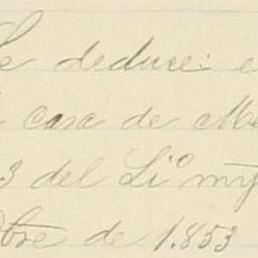 Se deduce: e
casa de M
3 del Li.º my
bre de 1.853